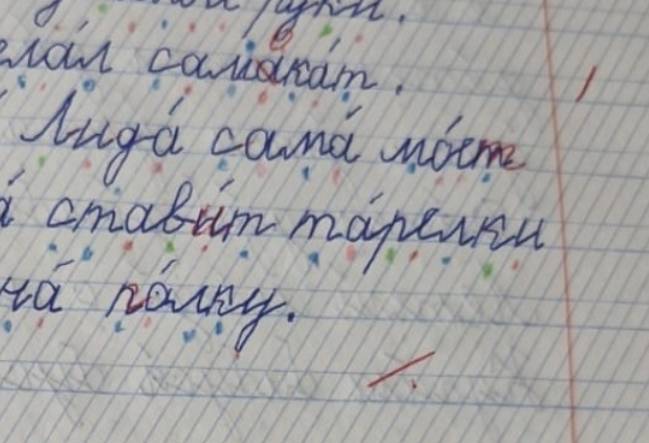 руки.
елал самакат.
Лида сама моет
ставит тарелки
на полку.